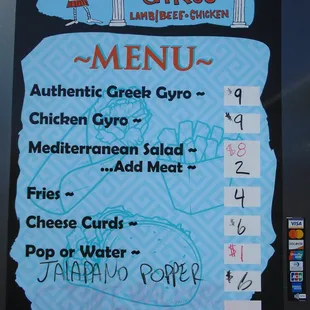 GYROS
LAMB/BEEF & CHICKEN
~MENU~
Authentic Greek Gyro ~ $9
Chicken Gyro ~ $9
Mediterranean Salad ~ $8
...Add Meat ~ 2
Fries ~ 4
Cheese Curds ~ $6
Pop or Water ~ $1
JALAPANO POPPER $6
VISA